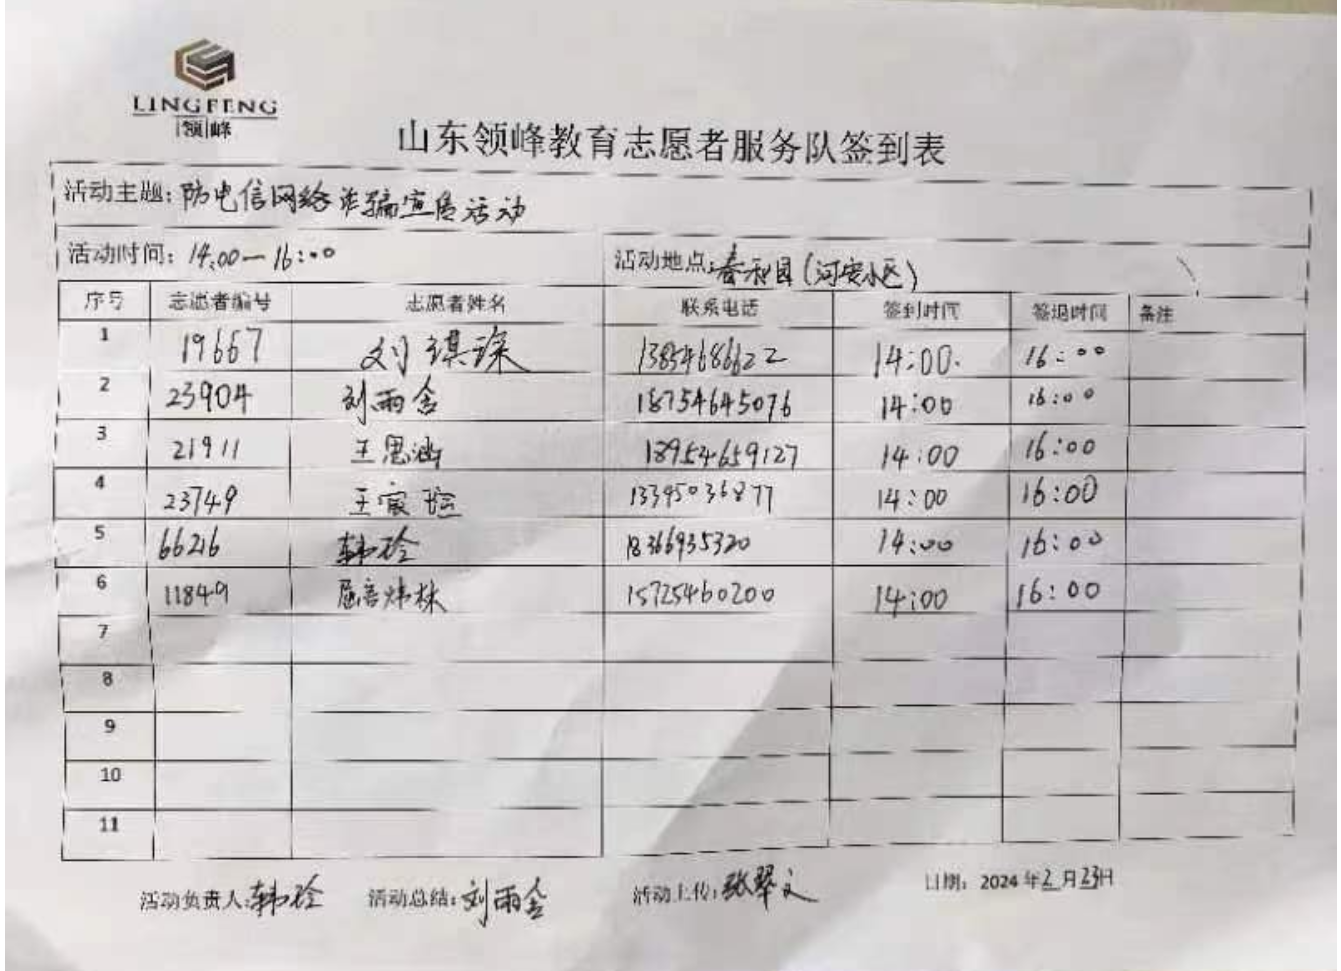 LINGFENG
领峰
山东领峰教育志愿者服务队签到表
活动主题：防电信网络诈骗宣传活动
活动时间：14:00—16:00 活动地点：春和园（河安小区）
序号 志愿者编号 志愿者姓名 联系电话 签到时间 签退时间 备注
1 19667 刘琪琛 13854686622 14:00. 16:00
2 23904 刘雨舍 18754645076 14:00 16:00
3 21911 王思涵 18954659127 14:00 16:00
4 23749 王宸 13395036877 14:00 16:00
5 66216 韩玲 18366935320 14:00 16:00
6 11849 15725460200 14:00 16:00
7
8
9
10
11
活动负责人：韩玲 活动总结：刘雨舍 活动上传：张翠文 日期：2024年2月23日